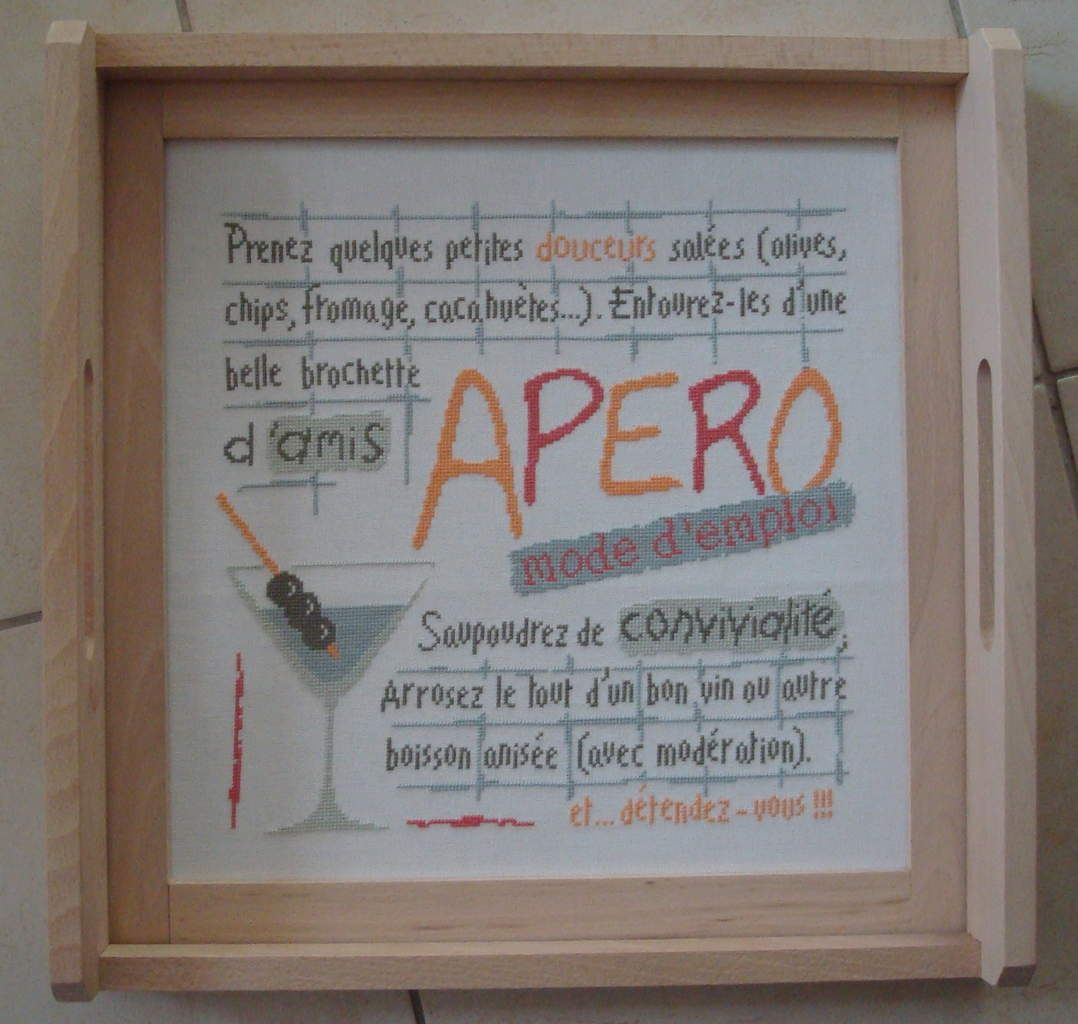 Prenez quelques petites douceurs salées (olives,
chips, fromage, cacahuètes...). Entourez-les d'une
belle brochette
d'amis
APERO
mode d'emploi
Saupoudrez de convivialité;
Arrosez le tout d'un bon vin ou autre
boisson anisée (avec modération).
et... détendez-vous !!!